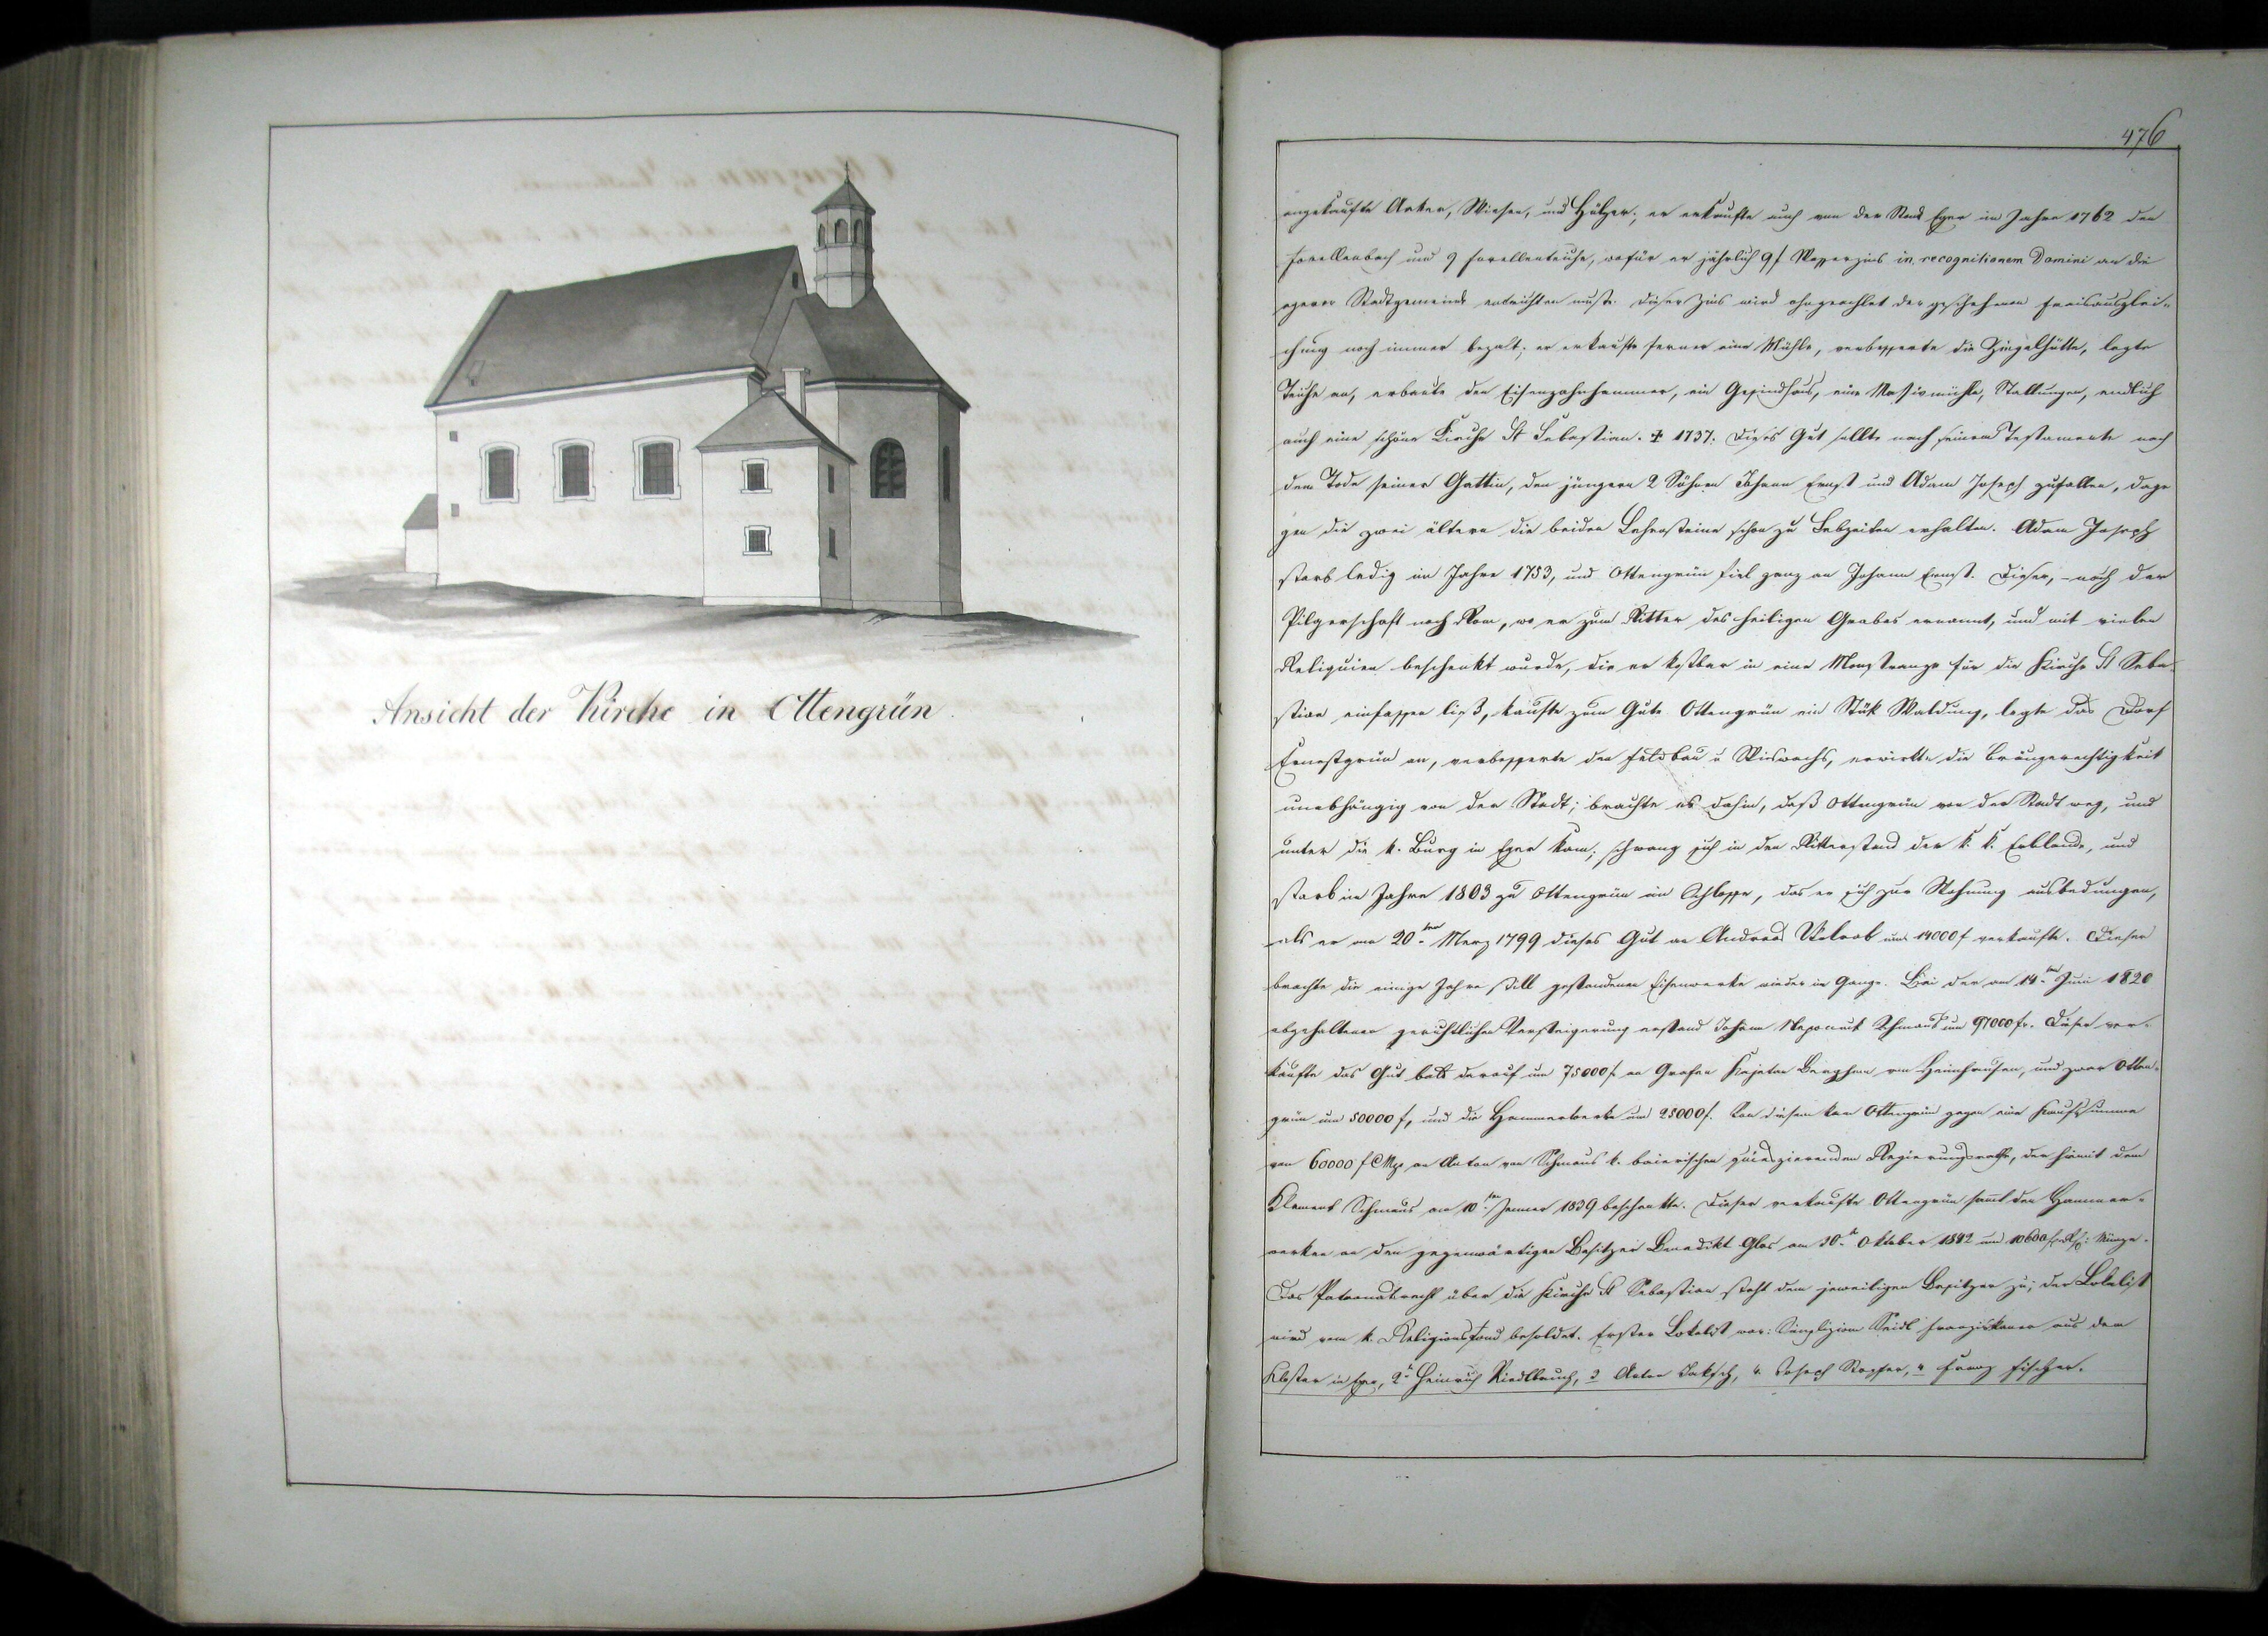 Ansicht der Kirche in Ottengrün.
476
angekaufte Aeker, Wiesen, und Hölzer; er erkaufte auch von der Stadt Eger im Jahre 1762 den
Forellenbach und 9 Forellenteuche, wofür er jährlich 9 f Wasserzins in recognitionem Domini an die
egerer Stadtgemeinde entrichten mußte. Dieser Zins wird ohngeachtet der geschehenen Fraisausglei-
chung noch immer bezalt; er erkaufte ferner eine Mühle, verbesserte die Ziegelhütte, legte
Teiche an, erbaute den Eisenzahnhammer, ein Gesindhaus, eine Massivmühle, Stallungen, endlich
auch eine schöne Kirche St Sebastian. † 1737. Dieses Gut sollte nach seinem Testamente nach
dem Tode seiner Gattin, den jüngern 2 Söhnen Johann Ernst und Adam Joseph zufallen, dage
gen die zwei ältern die beiden Lehensteine schon zu Lebzeiten erhalten. Adam Joseph
starb ledig im Jahre 1753, und Ottengrün fiel ganz an Johann Ernst. Dieser, nach der
Pilgerschaft nach Rom, wo er zum Ritter des heiligen Grabes ernannt, und mit vielen
Reliquien beschenkt wurde, die er kostbar in eine Monstranze für die Kirche St Seba-
stian einfassen ließ, kaufte zum Gute Ottengrün ein Stük Waldung, legte das Dorf
Ernestgrün an, verbesserte den Feldbau u Wieswachs, erwirkte die Bräugerechtigkeit
unabhängig von der Stadt; brachte es dahin, daß Ottengrün von der Stadt weg, und
unter die k. Burg in Eger kam; schwang sich in den Ritterstand der k. k. Erblande, und
starb im Jahre 1803 zu Ottengrün im Schlosse, das er sich zur Wohnung ausbedungen,
als er am 20.ten Merz 1799 dieses Gut an Andreas um 14000 f verkaufte. Dieser
brachte die einige Jahre still gestandenen Eisenwerke wieder in Gange. Bei der am 14.ten Juni 1820
abgehaltenen gerichtlichen Versteigerung erstand Johann Nepomuk Schmaus um 97000 fr. Dieser ver-
kaufte das Gut bald darauf um 75000 f. an Grafen Kajetan Berchem von Heimhausen, und zwar Otten-
grün um 50000 f, und die Hammerwerke um 25000 f. Von diesem kam Ottengrün gegen eine Kaufsumme
von 60000 f CMze an Anton von Schmaus k. baierischen quieszierenden Regierungsrathe, der hiemit dem
Klement Schmaus am 10.ten Jenner 1839 beschenkte. Dieser verkaufte Ottengrün sammt den Hammer-
werken an den gegenwärtigen Besitzer Benedikt Glas am 30.t Oktober 1842 um Münze.
Das Patronatsrecht über die Kirche St Sebastian steht dem jeweiligen Besitzer zu; der Lokalist
wird vom k. Religionsfond besoldet. Erster Lokalist war: Simplizian Seidl Franziskaner aus dem
Kloster in Eger, 2t Heinrich Riedlbauch, 3 Anton Jaksch, 4 Joseph Stopfer, Franz Fischer.